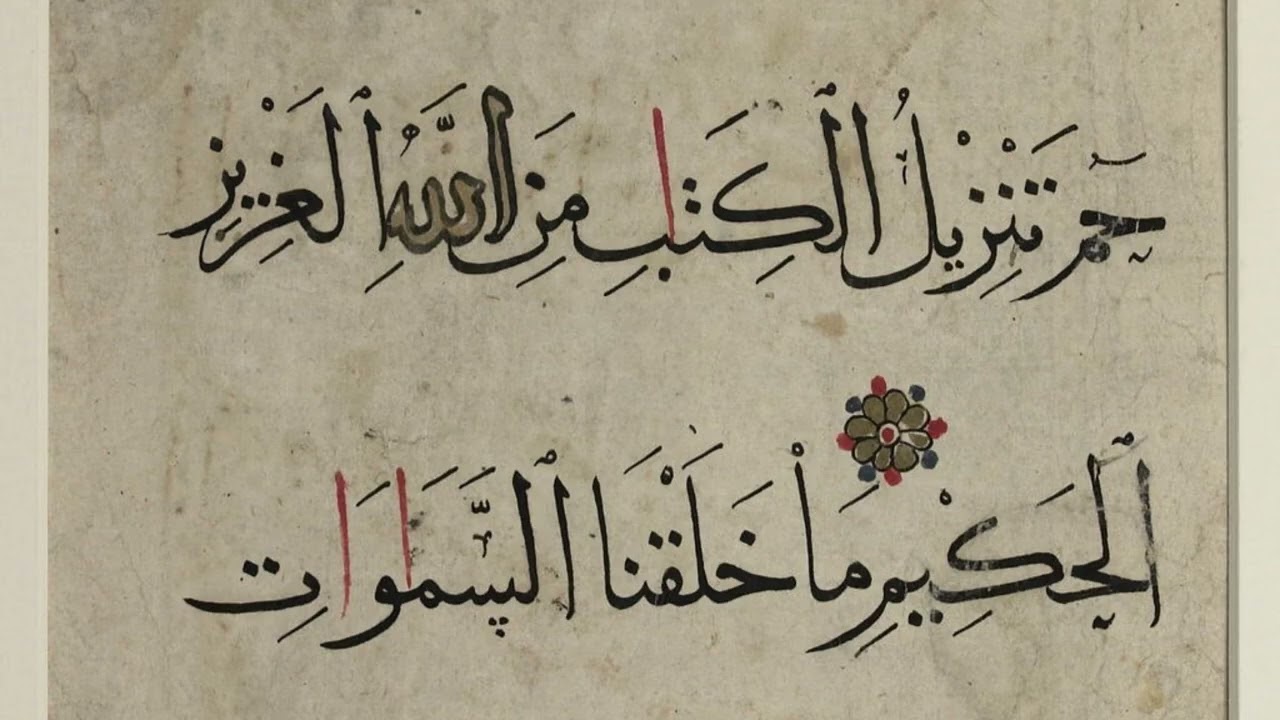 حمۤ تَنْزِيْلُ الْكِتٰبِ مِنَ اللّٰهِ الْعَزِيْزِ
الْحَكِيْمِ مَا خَلَقْنَا السَّمَاوَاتِ